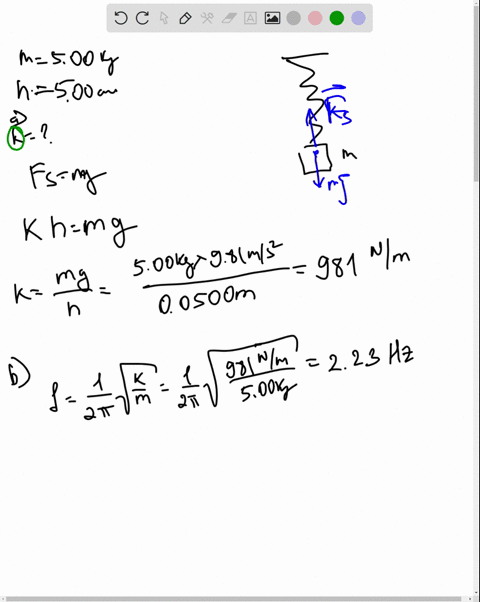 m = 5.00 kg
h = 5.00 cm
a)
k = ?
Fs = mg
K h = mg
k = mg/h = 5.00kg × 9.81 m/s² / 0.0500m = 981 N/m
b) f = 1/2π √k/m = 1/2π √981 N/m / 5.00kg = 2.23 Hz
Fs
m
mg